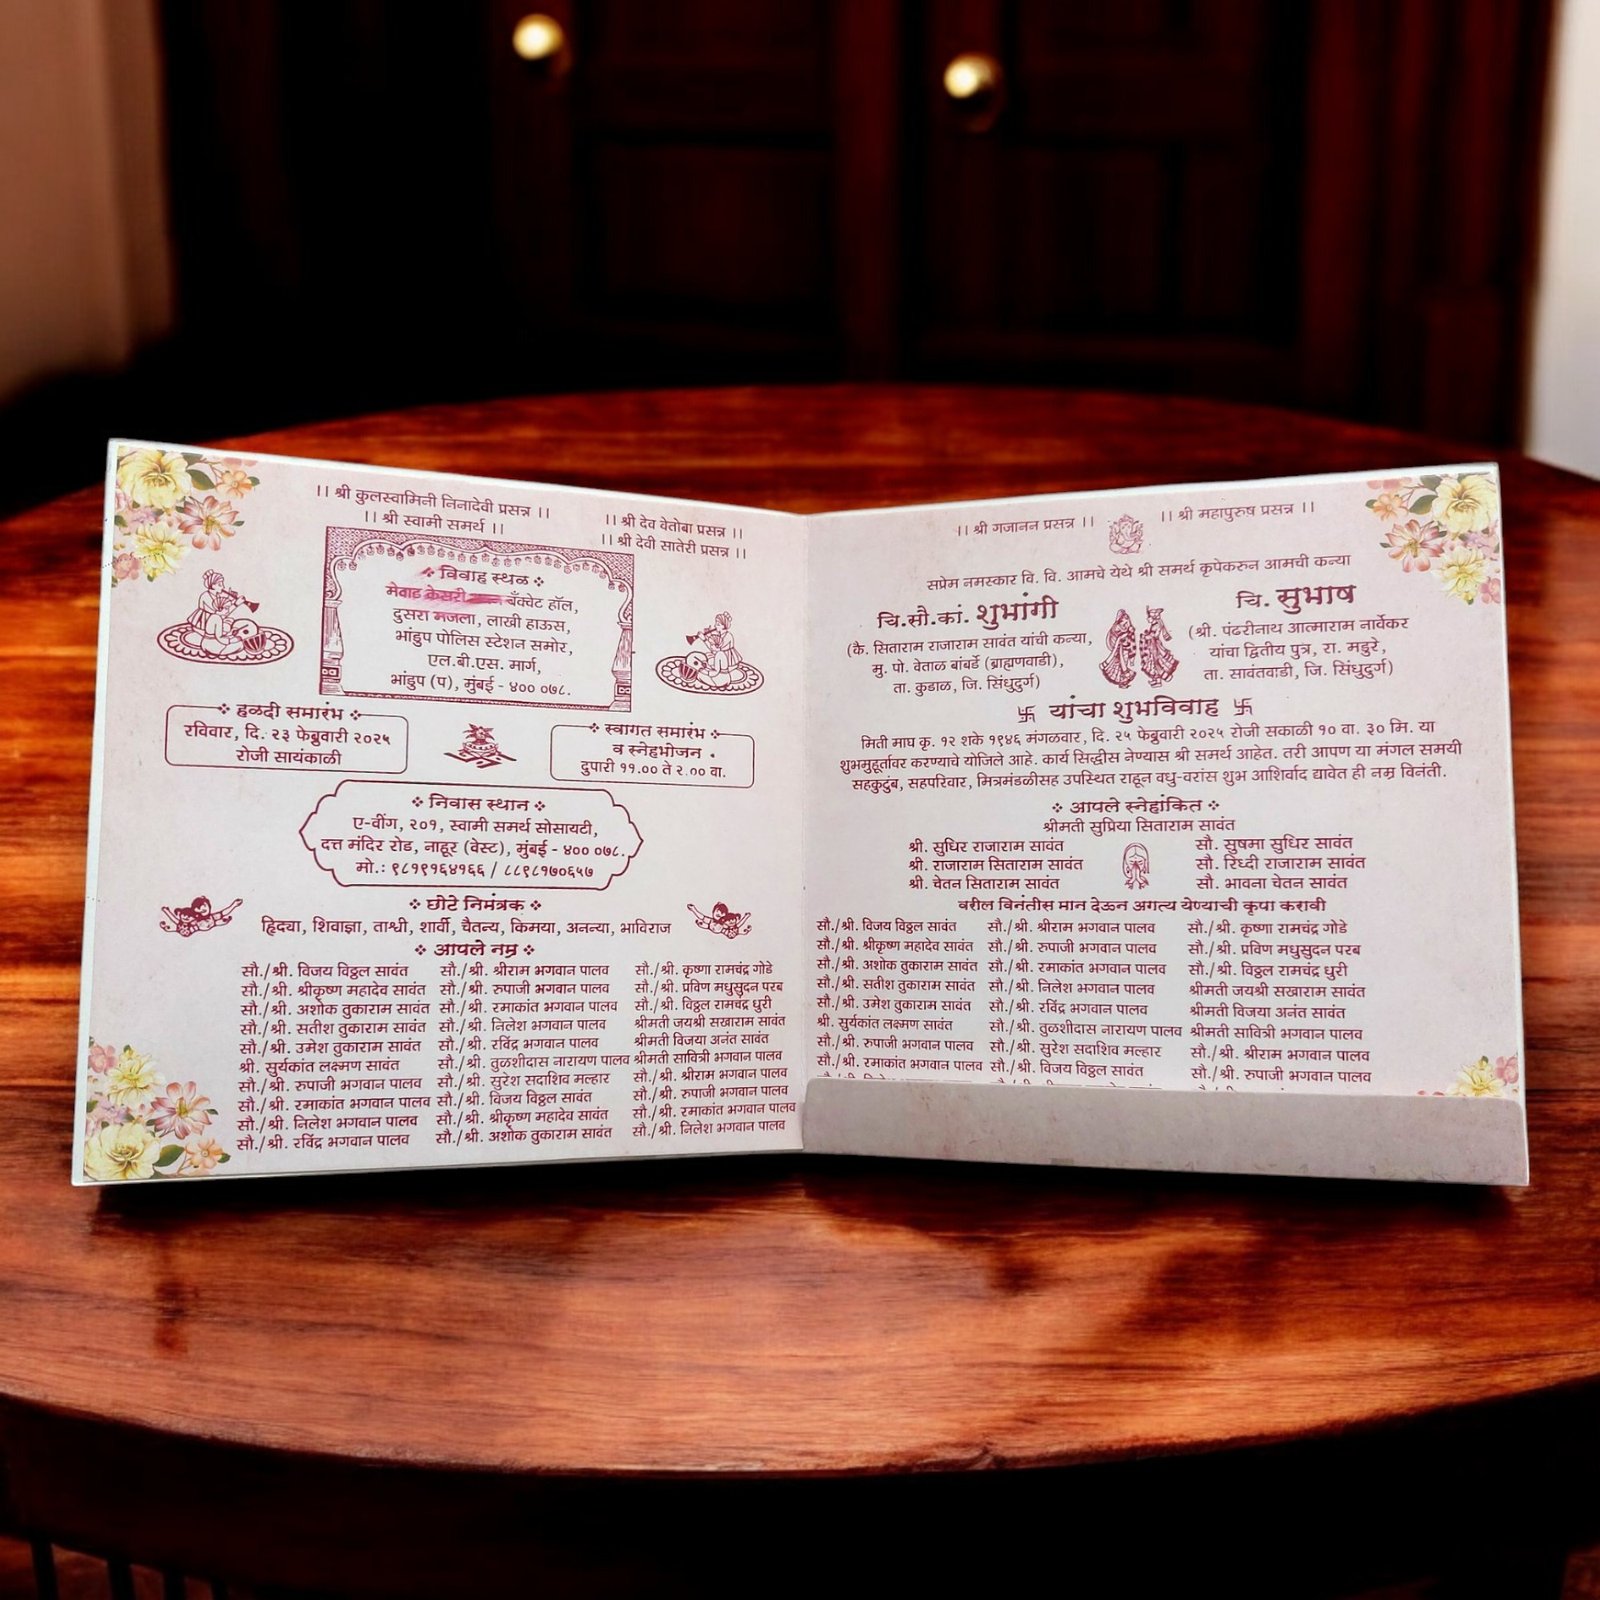 ।। श्री कुलस्वामिनी निनादेवी प्रसन्न ।।
।। श्री स्वामी समर्थ ।।
।। श्री देव वेतोबा प्रसन्न ।।
।। श्री देवी सातेरी प्रसन्न ।।
विवाह स्थळ
मेवाड केसरी बँक्वेट हॉल,
दुसरा मजला, लाखी हाऊस,
भांडुप पोलिस स्टेशन समोर,
एल.बी.एस. मार्ग,
भांडुप (प), मुंबई - ४०० ०७८.
हळदी समारंभ
रविवार, दि. २३ फेब्रुवारी २०२५
रोजी सायंकाळी
स्वागत समारंभ
व स्नेहभोजन
दुपारी ११.०० ते २.०० वा.
निवास स्थान
ए-वींग, २०१, स्वामी समर्थ सोसायटी,
दत्त मंदिर रोड, नाहूर (वेस्ट), मुंबई - ४०० ०७८.
मो.: ९८१९१६४१६६ / ८८९८१७०६५७
छोटे निमंत्रक
हृिदया, शिवाज्ञा, ताश्वी, शार्वी, चैतन्य, किमया, अनन्या, भाविराज
आपले नम्र
सौ./श्री. विजय विठ्ठल सावंत सौ./श्री. श्रीराम भगवान पालव सौ./श्री. कृष्णा रामचंद्र गोडे
सौ./श्री. श्रीकृष्ण महादेव सावंत सौ./श्री. रुपाजी भगवान पालव सौ./श्री. प्रविण मधुसुदन परब
सौ./श्री. अशोक तुकाराम सावंत सौ./श्री. रमाकांत भगवान पालव सौ./श्री. विठ्ठल रामचंद्र धुरी
सौ./श्री. सतीश तुकाराम सावंत सौ./श्री. निलेश भगवान पालव श्रीमती जयश्री सखाराम सावंत
सौ./श्री. उमेश तुकाराम सावंत सौ./श्री. रविंद्र भगवान पालव श्रीमती विजया अनंत सावंत
श्री. सुर्यकांत लक्ष्मण सावंत सौ./श्री. तुळशीदास नारायण पालव श्रीमती सावित्री भगवान पालव
सौ./श्री. रुपाजी भगवान पालव सौ./श्री. सुरेश सदाशिव मल्हार सौ./श्री. श्रीराम भगवान पालव
सौ./श्री. रमाकांत भगवान पालव सौ./श्री. विजय विठ्ठल सावंत सौ./श्री. रुपाजी भगवान पालव
सौ./श्री. निलेश भगवान पालव सौ./श्री. श्रीकृष्ण महादेव सावंत सौ./श्री. रमाकांत भगवान पालव
सौ./श्री. रविंद्र भगवान पालव सौ./श्री. अशोक तुकाराम सावंत सौ./श्री. निलेश भगवान पालव
।। श्री गजानन प्रसन्न ।।
।। श्री महापुरुष प्रसन्न ।।
सप्रेम नमस्कार वि. वि. आमचे येथे श्री समर्थ कृपेकरुन आमची कन्या
चि.सौ.कां. शुभांगी
(कै. सिताराम राजाराम सावंत यांची कन्या,
मु. पो. वेताळ बांबर्डे (ब्राह्मणवाडी),
ता. कुडाळ, जि. सिंधुदुर्ग)
चि. सुभाष
(श्री. पंढरीनाथ आत्माराम नार्वेकर
यांचा द्वितीय पुत्र, रा. मडुरे,
ता. सावंतवाडी, जि. सिंधुदुर्ग)
यांचा शुभविवाह
मिती माघ कृ. १२ शके १९४६ मंगळवार, दि. २५ फेब्रुवारी २०२५ रोजी सकाळी १० वा. ३० मि. या
शुभमुहूर्तावर करण्याचे योजिले आहे. कार्य सिद्धीस नेण्यास श्री समर्थ आहेत. तरी आपण या मंगल समयी
सहकुटुंब, सहपरिवार, मित्रमंडळीसह उपस्थित राहून वधु-वरांस शुभ आशिर्वाद द्यावेत ही नम्र विनंती.
आपले स्नेहांकित
श्रीमती सुप्रिया सिताराम सावंत
श्री. सुधिर राजाराम सावंत सौ. सुषमा सुधिर सावंत
श्री. राजाराम सिताराम सावंत सौ. रिध्दी राजाराम सावंत
श्री. चेतन सिताराम सावंत सौ. भावना चेतन सावंत
वरील विनंतीस मान देऊन अगत्य येण्याची कृपा करावी
सौ./श्री. विजय विठ्ठल सावंत सौ./श्री. श्रीराम भगवान पालव सौ./श्री. कृष्णा रामचंद्र गोडे
सौ./श्री. श्रीकृष्ण महादेव सावंत सौ./श्री. रुपाजी भगवान पालव सौ./श्री. प्रविण मधुसुदन परब
सौ./श्री. अशोक तुकाराम सावंत सौ./श्री. रमाकांत भगवान पालव सौ./श्री. विठ्ठल रामचंद्र धुरी
सौ./श्री. सतीश तुकाराम सावंत सौ./श्री. निलेश भगवान पालव श्रीमती जयश्री सखाराम सावंत
सौ./श्री. उमेश तुकाराम सावंत सौ./श्री. रविंद्र भगवान पालव श्रीमती विजया अनंत सावंत
श्री. सुर्यकांत लक्ष्मण सावंत सौ./श्री. तुळशीदास नारायण पालव श्रीमती सावित्री भगवान पालव
सौ./श्री. रुपाजी भगवान पालव सौ./श्री. सुरेश सदाशिव मल्हार सौ./श्री. श्रीराम भगवान पालव
सौ./श्री. रमाकांत भगवान पालव सौ./श्री. विजय विठ्ठल सावंत सौ./श्री. रुपाजी भगवान पालव